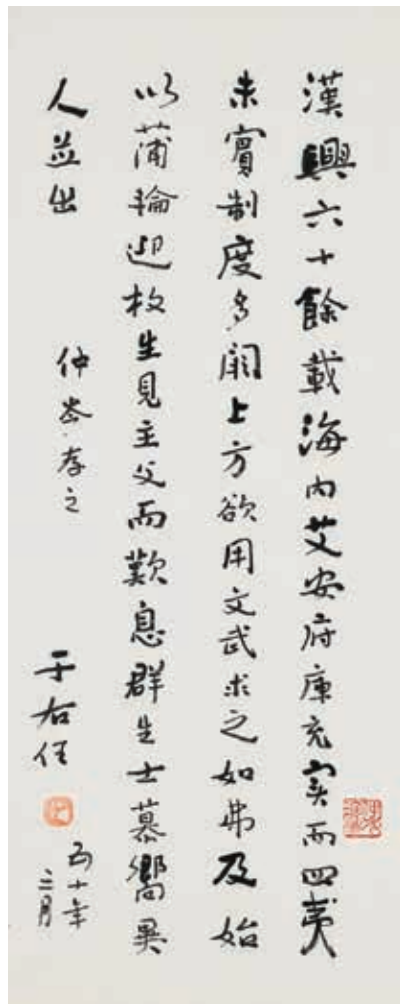 漢興六十餘載海內艾安府庫充實而四夷
未賓制度多闕上方欲用文武求之如弗及始
以蒲輪迎枚生見主父而歎息群生士慕嚮異
人並出
仲岑存之
于右任
五十年
三月